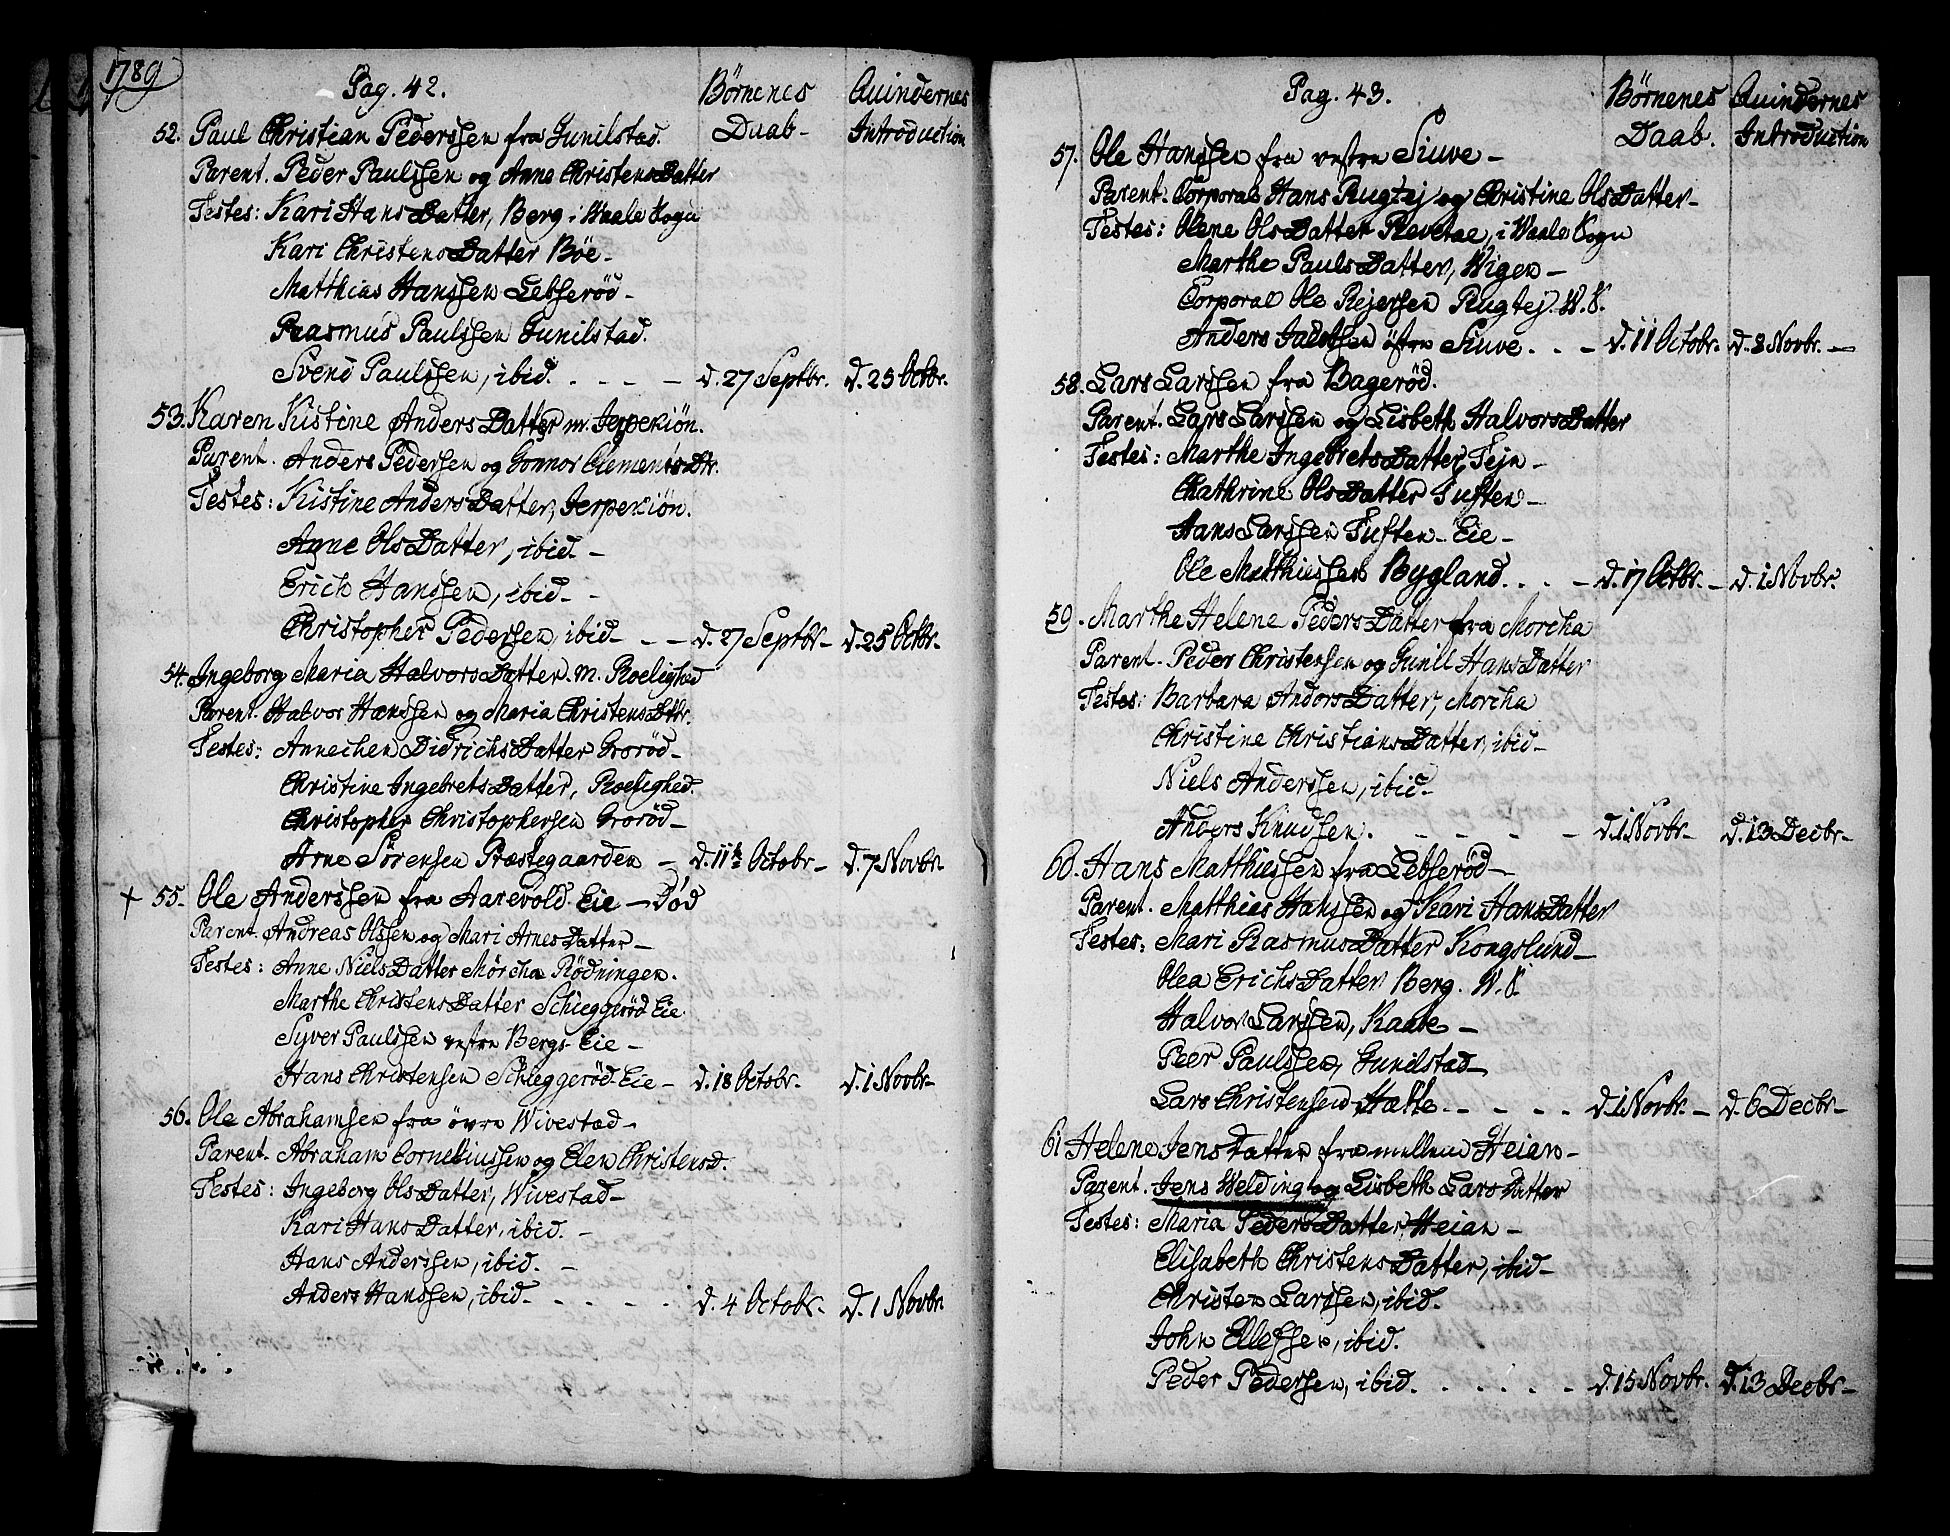 1789
Pag. 42.
Børnenes Daab-
Quindernes Introduction
52. Paul Christian Pederssen fra Gunilstad.
Parent. Peder Paulssen og Anne ChristensDatter
Testes: Kari HansDatter, Berg i Waale Sogn
Kari ChristensDatter Bøe-
Matthias Hanssen Lebserød-
Raasmus Paulssen Gunilstad.
Svend Paulssen, ibid. . - - - d. 27 Septbr. d. 25 Octbr.
53. Karen Kistine AndersDatter m. Jerpekiøn.
Parent. Anders Pedersen og Gonnor Clements Dtr.
Testes: Kistine AndersDatter, Jerpekiøn.
Anne OlsDatter, ibid. -
Erich Hanssen, ibid. -
Christopher Pedersen, ibid. - - d. 27 Septbr- d. 25 Octbr.
54. Ingeborg Maria HalvorsDatter m. Roelighed
Parent. Halvor Hanssen og Maria ChristensDttr.
Testes: Annechen DidrichsDatter Grorød-
Christine IngebretsDatter, Roelighed.
Christopher Christophersen Grorød-
Arne Sørensen Præstegaarden - d. 11 Octobr- d. 7 Novbr.
+ 55. Ole Anderssen fra Aarevold Eie - Død
Parent. Andreas Olssen og Mari ArnesDatter-
Testes: Anne NielsDatter Mørcha Rødningen.
Marthe ChristensDatter Schieggerød Eie
Syver Paulssen vestre Bergs Eie-
Hans Christensen Schieggerød Eie- d. 18 Octobr- d. 1 Novbr-
56. Ole Abrahamsen fra øvre Wivestad-
Parent. Abraham Corneliussen og Elen Christensd.
Testes: Ingeborg OlsDatter, Wivestad-
Kari HansDatter, ibid. -
Hans Anderssen, ibid. -
Anders Hanssen, ibid. - - - - d. 4 Octobr- d. 1 Novbr.
Pag. 43.
Børnenes Daab.
Quindernes Introduction
57. Ole Hanssen fra vestre Siuve-
Parent. Corporal Hans Rugtej og Christine OlsDatter-
Testes: Olene OlsDatter Revetae, i Waale Sogn
Marthe PaulsDatter, Wigen-
Corporal Ole Rejersen Rugtej. W. S.
Anders Jacobsen østre Siuve . . - d. 11 Octobr. d. 8 Novbr. -
58. Lars Larssen fra Bagerød.
Parent. Lars Larssen og Lisbeth HalvorsDatter
Testes: Marthe IngebretsDatter, Tejn-
Chathrine OlsDatter Tuften-
Hans Larssen Tuften-Eie-
Ole Matthiessen Bygland. . . - d. 17 Octbr. - d. 1 Novbr.
59. Marthe Helene PedersDatter fra Morcha
Parent. Peder Christensen og Gunill HansDatter
Testes: Barbara AndorsDatter, Morcha
Christine ChristiansDatter, ibid-
Niels Anderssen, ibid-
Anders Knudsen. - - - - - d. 1 Novbr- d. 13 Decbr-
60. Hans Matthiessen fra Lebserød-
Parent. Matthias Hanssen og Kari HansDatter
Testes: Mari RasmusDatter Kongslund-
Olea ErichsDatter Berg. W. S.
Halvor Larssen, Kaabe-
Peer Paulssen, Gunilstad-
Lars Christensen Hætte - - - - d. 1 Novbr. - d. 6 Decbr-
61 Helene JensDatter fra mellem Heian-
Parent. Jens Welding og Lisbeth LarsDatter
Testes: Maria PedersDatter, Heian-
Elisabeth ChristensDatter, ibid-
Christen Larssen, ibid.
John Ellefsen, ibid.
Peder Pedersen, ibid. . . . . . d. 15 Novbr. d. 13 Decbr-